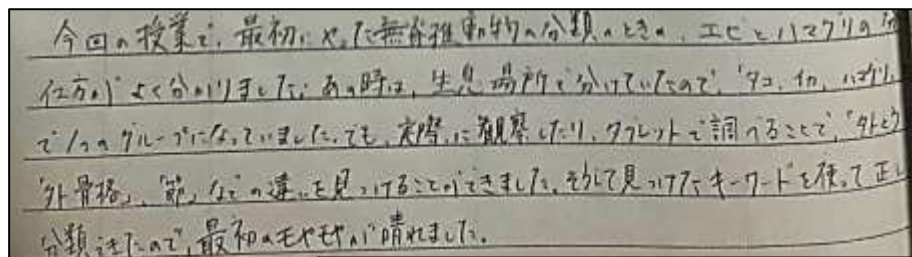 今回の授業で、最初にやった無脊椎動物の分類のときの、エビとハマグリの分
仕方がよく分かりました。あの時は、生息場所で分けていたので、「タコ、イカ、ハマグリ、
で1つのグループになっていました。でも、実際に観察したり、タブレットで調べることで、「外とう
「外骨格」、「節」などの違いを見つけることができました。そして見つけたキーワードを使って正し
分類できたので、最初のモヤモヤが晴れました。